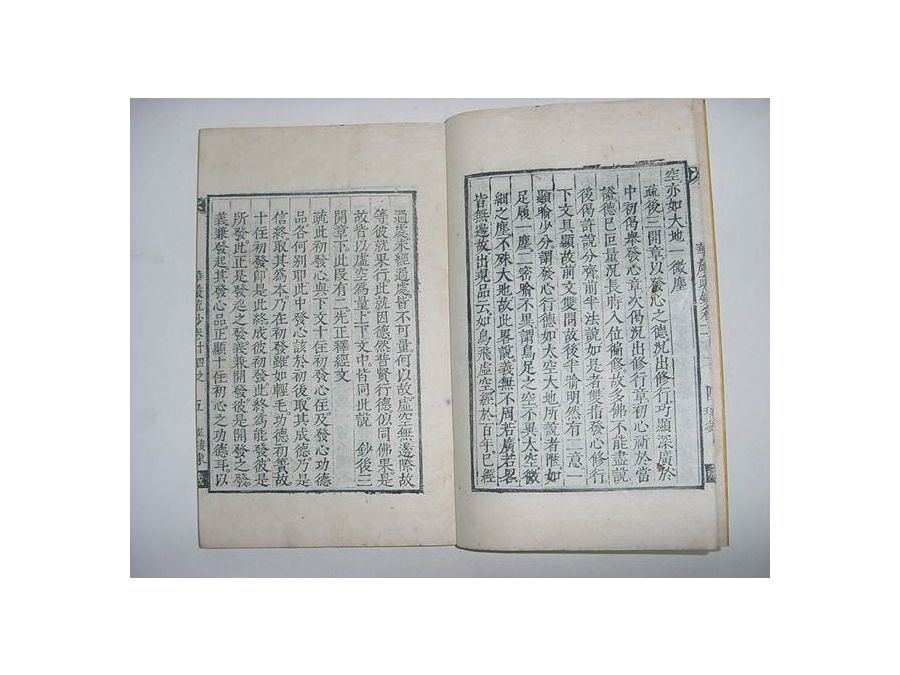 空亦如大地一微塵
疏後三開章以發心之德況出修行巧顯深廣於
中初偈舉發心章次偈況出修行章初心祈於當
證德已回量況長時入位徧修故多佛不能盡說
後偈許說分齊前半法說如是者雙指發心修行
下文具顯故前文雙問故後半喻明然有二意一
顯喻少分謂發心行德如大空大地所說者唯如
足履一塵二密喻不異謂鳥足之空不異太空微
細之塵不殊大地故此畧說義無不周若廣若畧
皆無邊故出現品云如鳥飛虛空經於百年已經
過處未經過處皆不可量何以故虛空無邊際故
等彼就果行此就因德然普賢行德似同佛果是
故皆以虛空為量上下文中皆同此說 鈔後三
開章下此段有二先正釋經文
疏此初發心與下文十住初發心住及發心功德
品各何別耶此中發心該於初後取其成德乃是
信終取其為本乃在初發雖如輕毛功德初簣故
十住初發卽是此終成彼初發此終為能發彼是
所發此正是發起之發義兼開發彼是開發之發
義兼發起其發心品正顯十住初心之功德耳以
華嚴疏鈔卷十四之 五